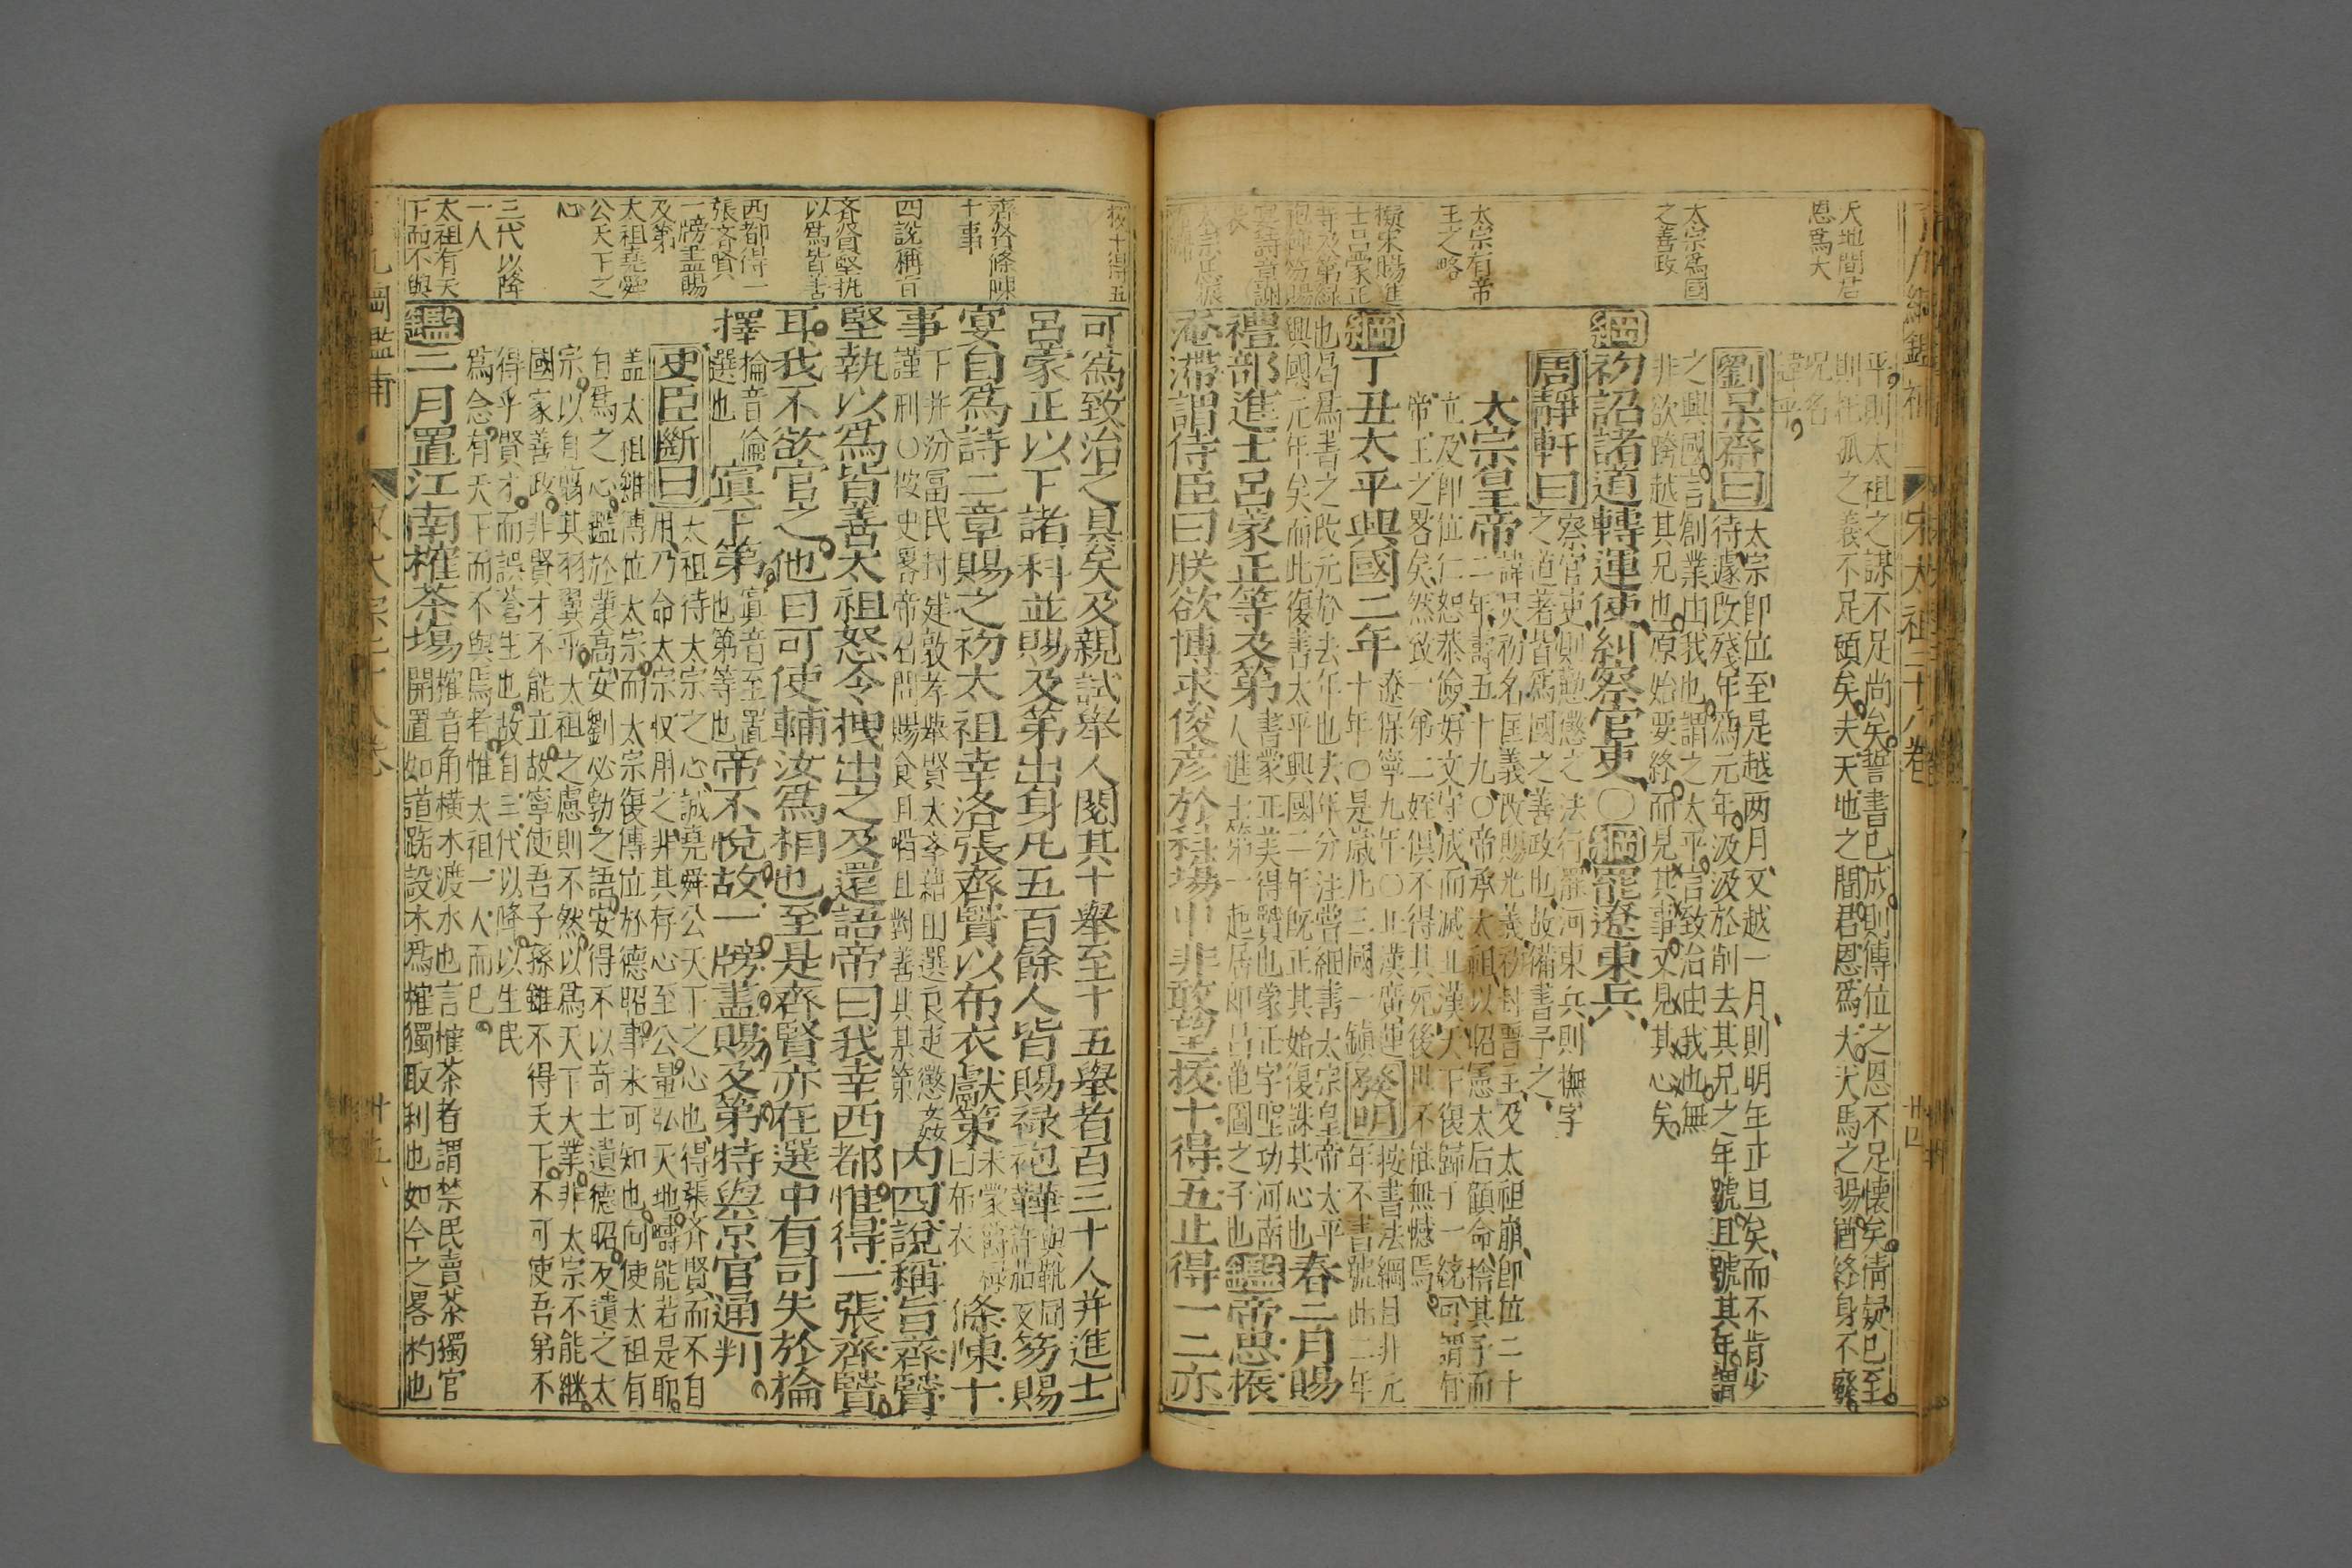 天地間君
恩爲大
太宗爲國
之善政
太宗有帝
王之略
擬宋賜進
士呂蒙正
等及第綠
袍靴笏賜
宴詩章謝
表
宋太祖三十八卷
廿四
平則太祖之謀不足尚矣誓書已成則傳位之恩不足懷矣情疑已至
則托孤之義不足頭矣夫天地之間君恩爲大犬馬之賜猶終身不廢
況名
諱乎
劉杲齋曰太宗即位至是越两月又越一月則明年正旦矣而不肯少
待遽改殘年爲元年汲汲於削去其兄之年號且號其年謂
之興國言創業由我也謂之太平言致治由我也無
非欲跨越其兄也原始要終而見其事又見其心矣
綱初詔諸道轉運使糾察官吏○綱罷遼東兵
周靜軒曰察官吏則勸懲之法行罷河東兵則撫字
之道著皆爲國之善政也故備書予之
太宗皇帝諱炅初名匡義改賜光義初封晋王及太祖崩即位二十
二年壽五十九○帝承太祖以昭憲太后顧命捨其子而
立及即位仁恕恭儉好文守成而滅北漢天下復歸于一統可謂有
帝王之畧矣然致一弟二姪俱不得其死後世不能無憾焉
綱丁丑太平興國二年遼保寧九年○北漢廣運
十年○是歲凡三國一鎮發明按書法綱目非元
年不書號此二年
也曷爲書之改元於去年也去年分注嘗細書太宗皇帝太平
興國元年矣而此復書太平興國二年旣正其始復誅其心也春二月賜
禮部進士呂蒙正等及第書蒙正美得賢也蒙正字聖功河南
人進士第一起居郎呂龜圖之子也鑑帝思振
淹滯謂侍臣曰朕欲博求俊彦於科場中非敢望拔十得五止得一二亦
拔十得五
齊賢條陳
十事
四説稱旨
齊賢堅執
以爲皆善
西都得一
張齊賢
一牓盡賜
及第
太祖堯舜
公天下之
心
三代以降
一人
太祖有天
下而不與
可爲致治之具矣及親試舉人閱其十舉至十五舉者百三十人并進士
呂蒙正以下諸科並賜及第出身凡五百餘人皆賜祿袍鞾與靴同
許茄叉笏賜
宴自爲詩二章賜之初太祖幸洛張齊賢以布衣獻策未蒙爵祿
曰布衣條陳十
事下并汾富民封建敦孝舉賢太孝藉田選良吏懲姦
謹刑○按史畧帝召問賜食且啗且對善其某策内四說稱旨齊賢
堅執以爲皆善太祖怒令拽出之及還語帝曰我幸西都惟得一張齊賢
耳我不欲官之他日可使輔汝爲相也至是齊賢亦在選中有司失於掄
擇掄音倫
選也寘下第寘音至置
也第等也帝不悅故一牓盡賜及第特與京官通判
史臣斷曰太祖待太宗之心誠堯舜公天下之心也得張齊賢而不自
用乃命太宗収用之非其存心至公量弘天地疇能若是耶
盖太祖雖傳位太宗而太宗復傳位於德昭事未可知也向使太祖有
自爲之心鑑於漢高安劉必勃之語安得不以竒士遺德昭及遺之太
宗以自翦其羽翼乎太祖之慮則不然以爲天下大業非太宗不能継
國家善政非賢才不能立故寧使吾子孫雖不得天下不可使吾弟不
得乎賢才而誤蒼生也故自三代以降以生民
爲念有天下而不與焉者惟太祖一人而已
鑑三月置江南榷茶場榷音角横木渡水也言榷茶者謂禁民賣茶獨官
開置如道路設木爲榷獨取利也如今之畧杓也
宋太宗三十八卷
廿五